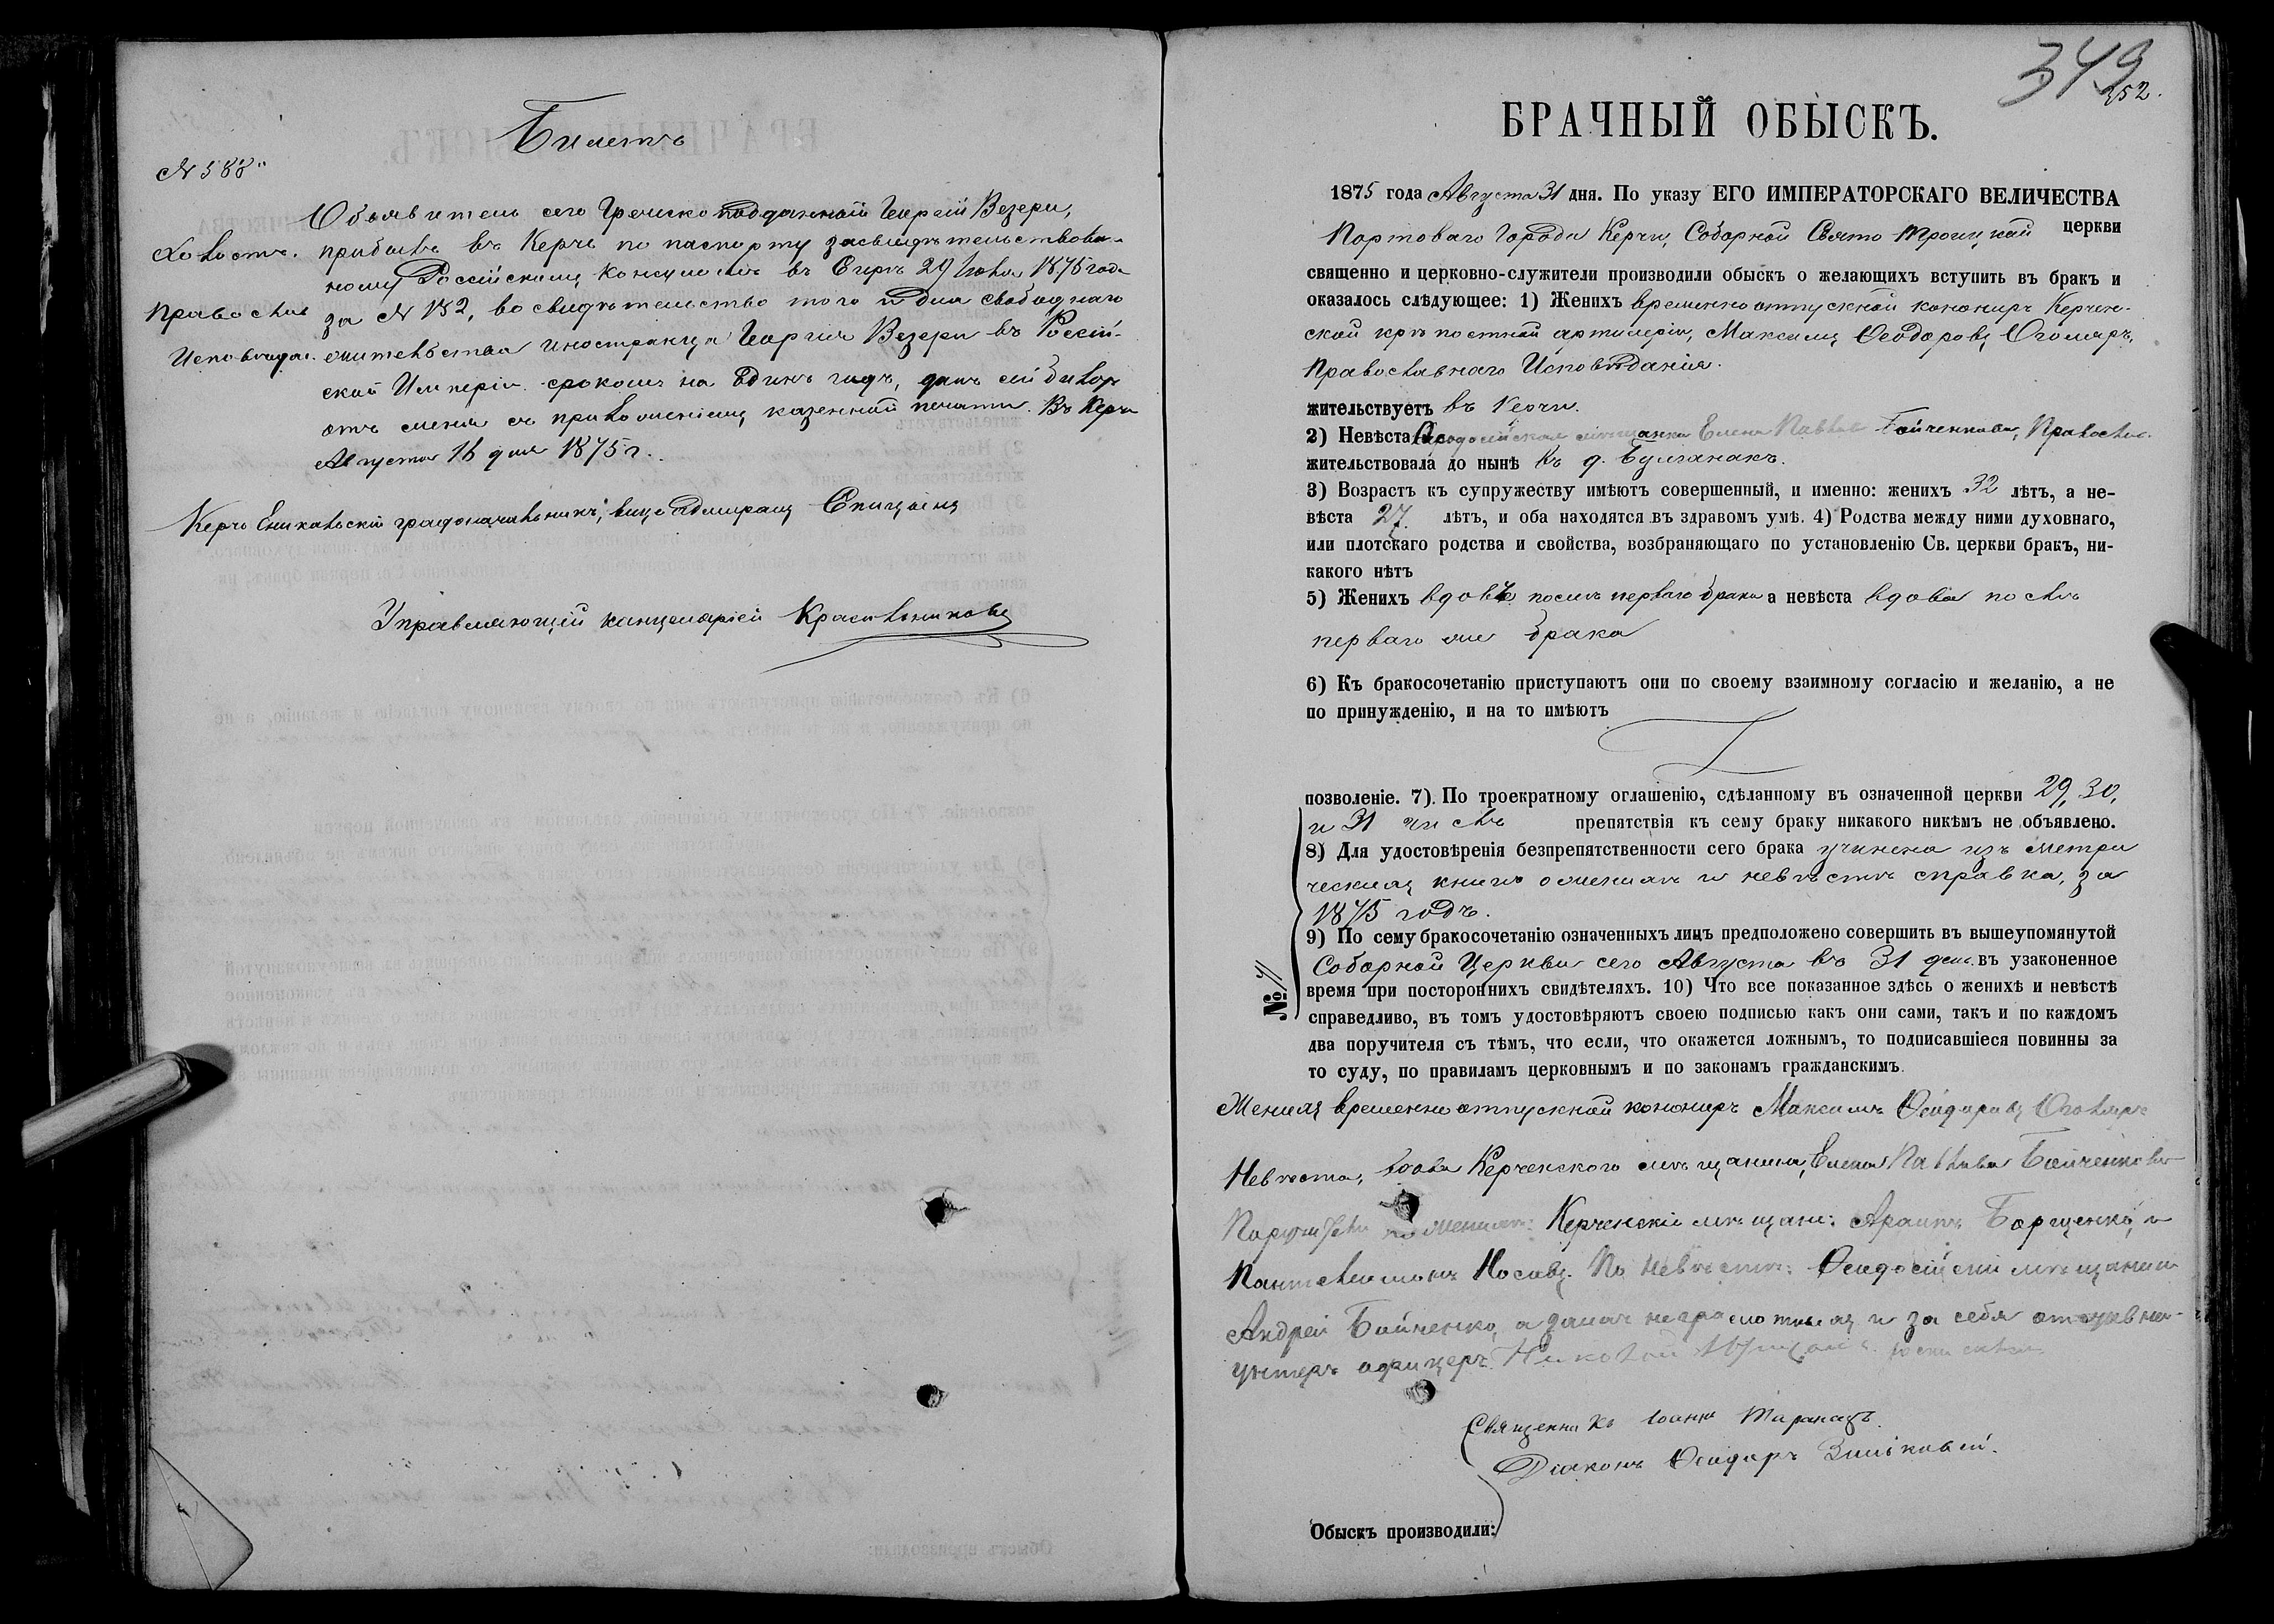 Билетъ
№ 588.
Объявитель сего Греческоподданный Георгій Везери,
Холостъ. прибылъ въ Керчь по паспорту засвидѣтельствован-
ному Россійскимъ Консуломъ въ 29 Іюня 1875 года
Православ за № 152, во свидѣтельство того и для свободнаго
Исповѣдан. жительства иностранца Георгія Везери въ Россій-
ской Имперіи срокомъ на одинъ годъ, данъ сей билетъ
отъ меня съ приложеніемъ казенной печати. Въ Керчи
Августа 16 дня 1875 г.
Керчь Еникальскій градоначальникъ, вице адмиралъ Спицынъ
Управляющій канцеляріей Красильниковъ
349
352.
БРАЧНЫЙ ОБЫСКЪ.
1875 года Августа 31 дня. По указу ЕГО ИМПЕРАТОРСКАГО ВЕЛИЧЕСТВА
Портоваго Города Керчи, Соборной Свято Троицкой церкви
священно и церковно-служители производили обыскъ о желающихъ вступить въ бракъ и
оказалось слѣдующее: 1) Женихъ временно отпускной конониръ Керчен-
ской крѣпостной артилеріи, Максимъ Ѳеодоровъ
Православнаго Исповѣданія.
жительствуетъ въ Керчи.
2) Невѣста Ѳеодосійская мѣщанка Елена Павлова Бойченкова, Православ.
жительствовала до нынѣ въ д. Булганакъ.
3) Возрастъ къ супружеству имѣютъ совершенный, и именно: женихъ 32 лѣтъ, а не-
вѣста 27. лѣтъ, и оба находятся въ здравомъ умѣ. 4) Родства между ними духовнаго,
или плотскаго родства и свойства, возбраняющаго по установленію Св. церкви бракъ, ни-
какого нѣтъ
5) Женихъ вдовъ послѣ перваго брака а невѣста вдова послѣ
перваго же брака
6) Къ бракосочетанію приступаютъ они по своему взаимному согласію и желанію, а не
по принужденію, и на то имѣютъ
позволеніе. 7) По троекратному оглашенію, сдѣланному въ означенной церкви 29, 30,
и 31 числъ препятствія къ сему браку никакого никѣмъ не объявлено.
8) Для удостовѣренія безпрепятственности сего брака учинена изъ метри
ческихъ книгъ о женихѣ и невѣстѣ справка, за
1875 годъ.
9) По сему бракосочетанію означенныхъ лицъ предположено совершить въ вышеупомянутой
Соборной Церкви сего Августа въ 31 день въ узаконенное
время при постороннихъ свидѣтеляхъ. 10) Что все показанное здѣсь о женихѣ и невѣстѣ
справедливо, въ томъ удостовѣряютъ своею подписью какъ они сами, такъ и по каждомъ
два поручителя съ тѣмъ, что если, что окажется ложнымъ, то подписавшіеся повинны за
то суду, по правиламъ церковнымъ и по законамъ гражданскимъ.
Женихъ временно отпускной конониръ Максимъ Ѳеодоровъ
Невѣста, вдова Керченского мѣщанина, Елена Павлова Бойченкова
Поручители по женихѣ: Керченскіе мѣщане: Борщенко, и
Пантелимонъ Носовъ. По невѣстѣ: Ѳеодосійскій мѣщанинъ
Андрей Бойченко, а за неграмотныхъ и за себя отставной
унтеръ офицеръ Николай
Священникъ Іоаннъ
Діаконъ Ѳеодоръ
Обыскъ производили: